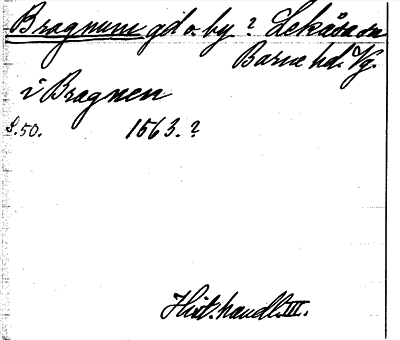 Bragnum gd o. by ? Lekåsa sn
Barne hd. Vg.
i Bragnen
S. 50. 1563. ?
Hist. handl. III.